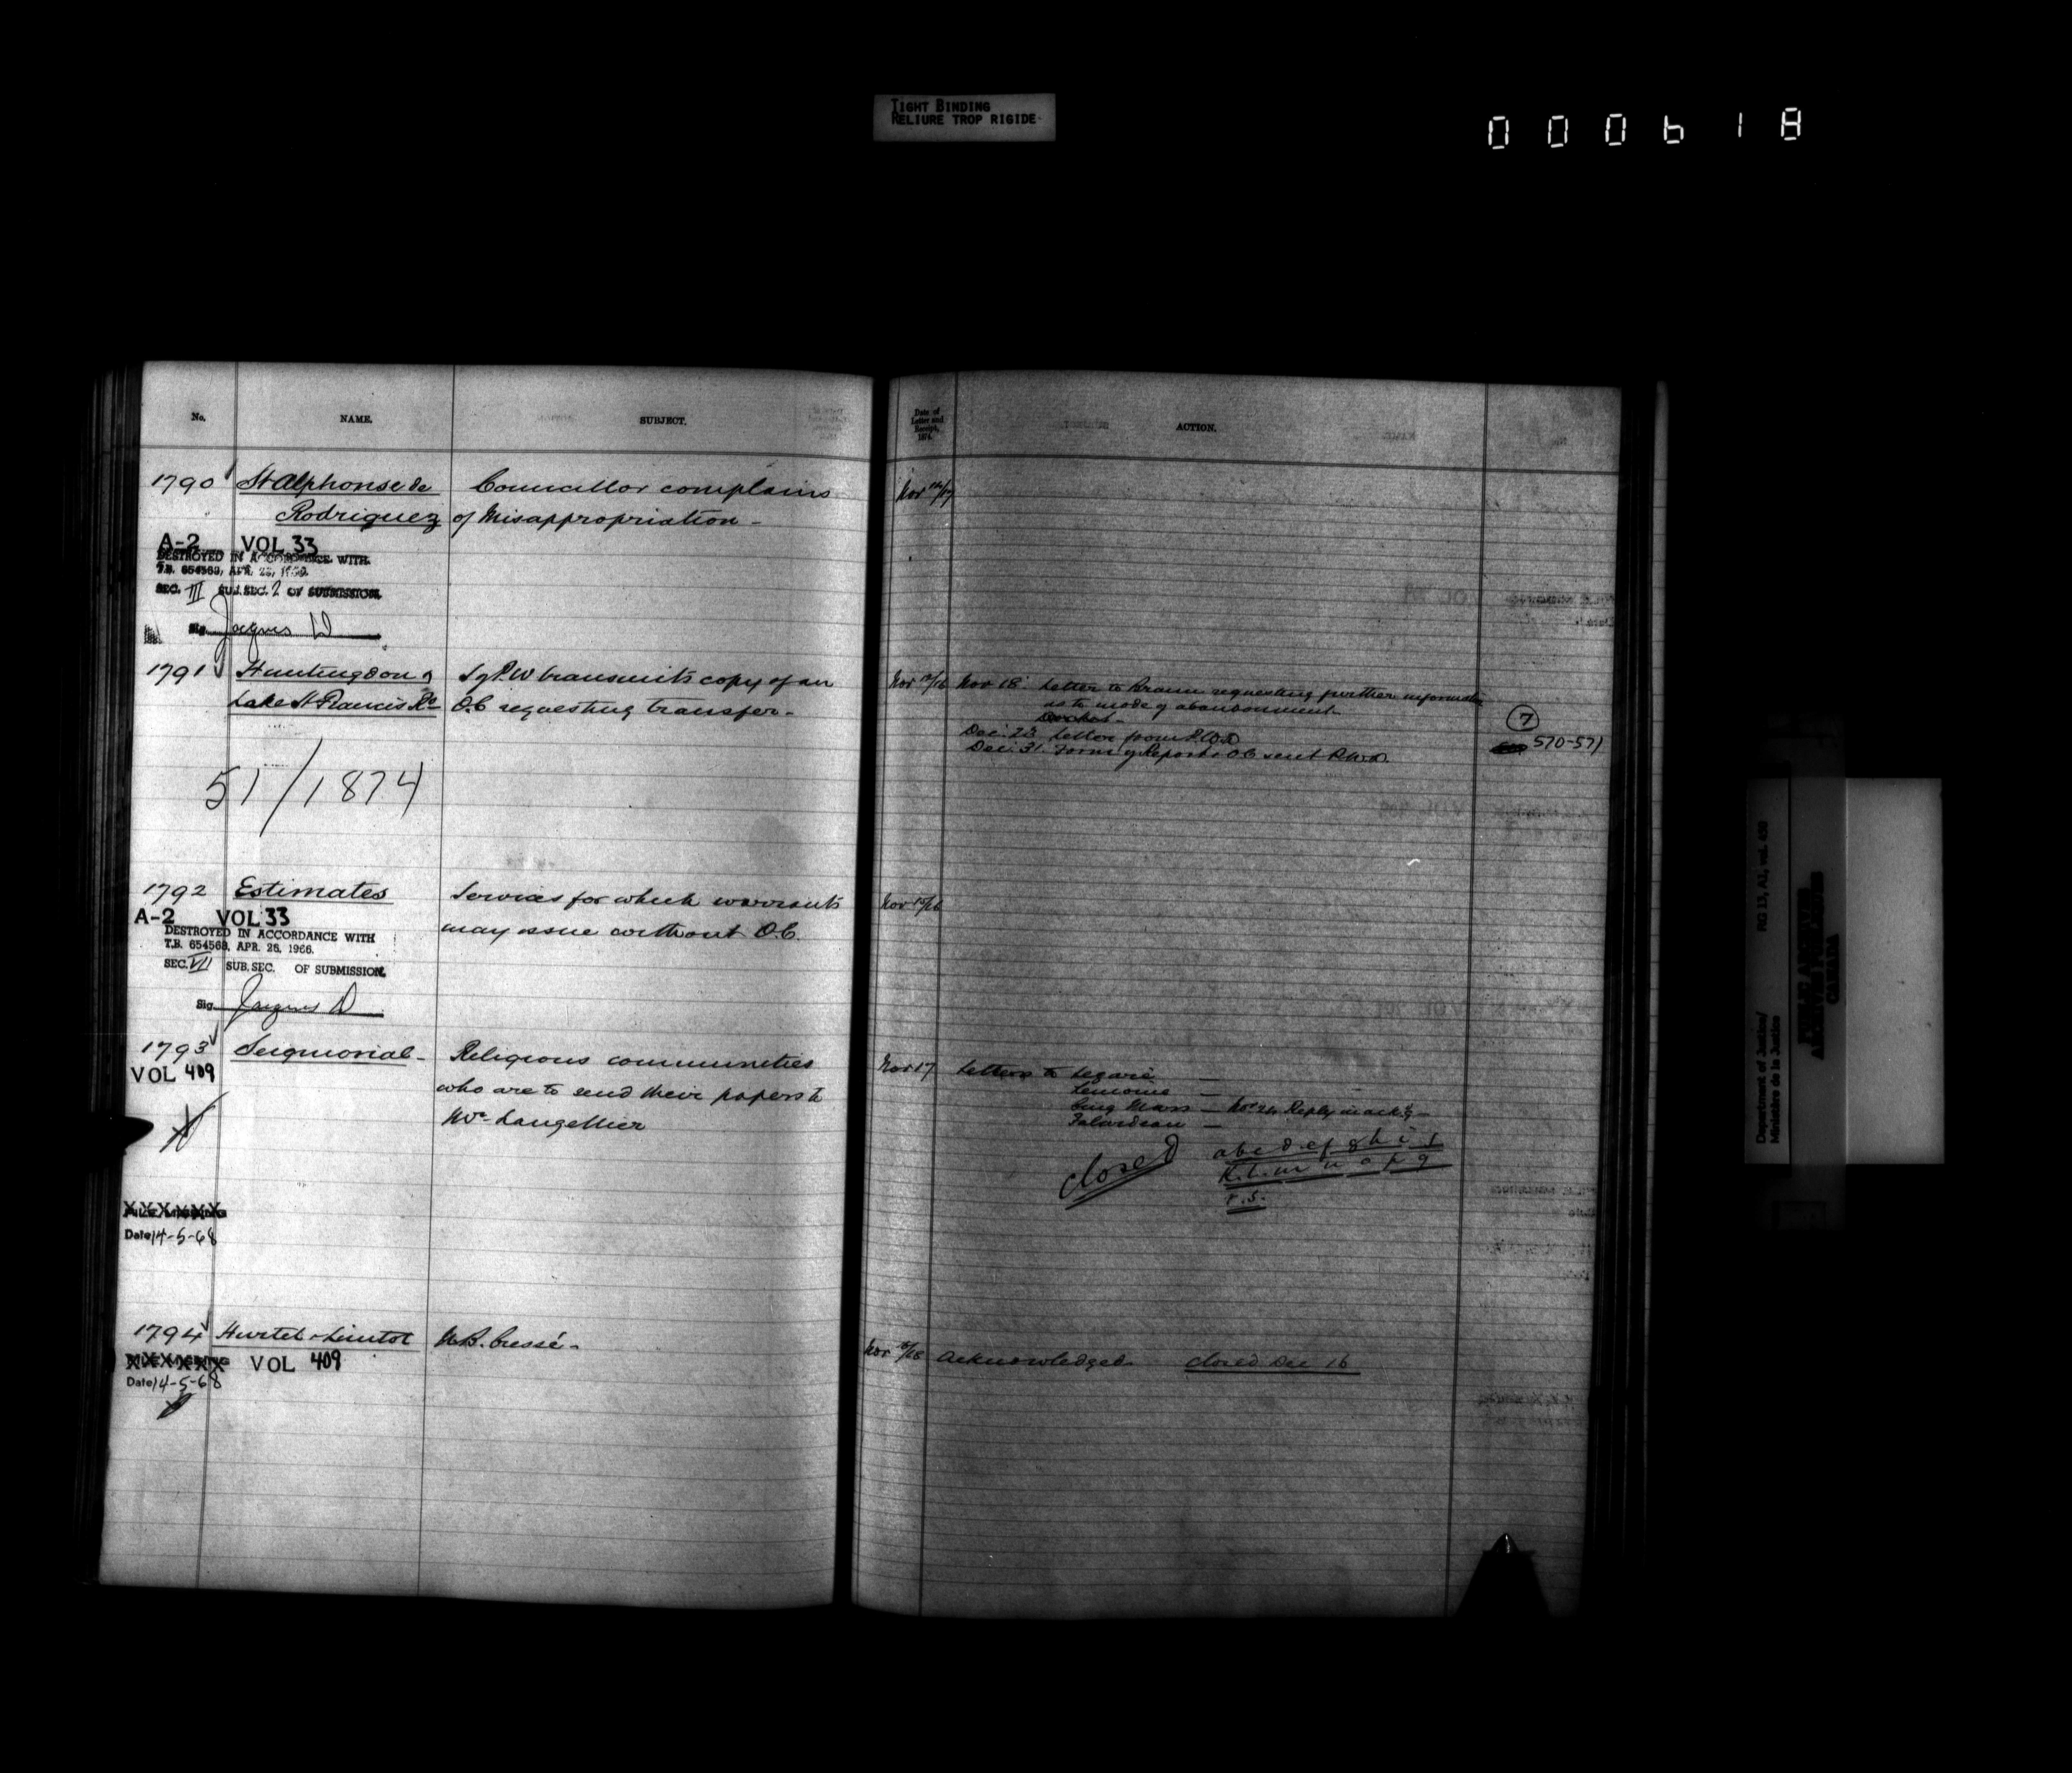 TIGHT BINDING
RELIURE TROP RIGIDE
000618
No. NAME. SUBJECT.
1790 St Alphonse de Councillor complains
Rodriguez of Misappropriation -
A-2 VOL 33
DESTROYED IN ACCORDANCE WITH
T.B. 654563, APR. 26,
SEC. III SUB. SEC. 2 OF SUBMISSION.
Sig. Jacques D
1791 Huntingdon &
Lake St Francis Rd
S of P.W transmits copy of an
O.C requesting transfer -
51/1874
1792 Estimates Services for which warrants
may issue without O.C.
A-2 VOL 33
DESTROYED IN ACCORDANCE WITH
T.B. 654563, APR. 26, 1966.
SEC. VII SUB. SEC. OF SUBMISSION.
Sig. Jacques D
1793 Seigniorial - Religious communities
VOL 409 who are to send their papers to
Mr Langellier
XXXXXX
Date 14-5-68
1794 Hurtel & Lintot N.B. Cressé -
XXXXXX VOL 409
Date 14-5-68
Date of
Letter and
Receipt,
1874.
ACTION.
Nov
Nov Nov 18 Letter to Braun requesting further information
as to mode of abandonment
Dec. 23 Letter from P.W.D
Dec. 31 Form of Report & O.C sent P.W.D.
7
570-571
Nov
Nov 17 Letters to Legaré —
Lemoine —
Cinq Mars — Nov 24 Reply in ackg —
Falardeau —
closed
a b c d e f g h i j
k l m n o p q
r. s.
Nov Acknowledged. closed Dec 16
RG 13, A1, vol. 430
Department of Justice/
Ministère de la Justice
PUBLIC ARCHIVES
ARCHIVES PUBLIQUES
CANADA